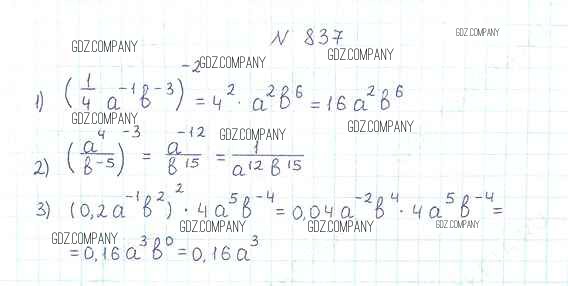 N 837
GDZ.COMPANY
GDZ.COMPANY
GDZ.COMPANY
GDZ.COMPANY
1) (1/4 a⁻¹b⁻³)⁻² = 4² · a²b⁶ = 16a²b⁶
GDZ.COMPANY
GDZ.COMPANY
GDZ.COMPANY
2) (a⁴/b⁻⁵)⁻³ = a⁻¹²/b¹⁵ = 1/a¹²b¹⁵
3) (0,2a⁻¹b²)² · 4a⁵b⁻⁴ = 0,04a⁻²b⁴ · 4a⁵b⁻⁴ =
GDZ.COMPANY
GDZ.COMPANY
GDZ.COMPANY
GDZ.COMPANY
= 0,16a³b⁰ = 0,16a³